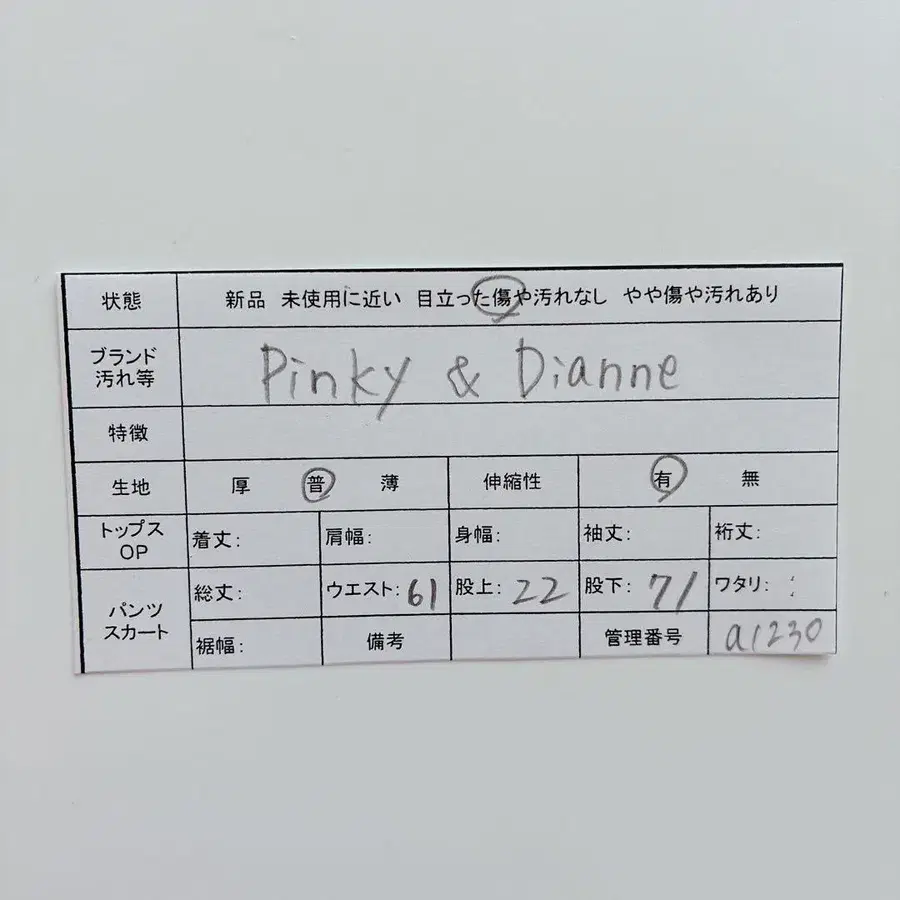 状態 新品 未使用に近い 目立った傷や汚れなし やや傷や汚れあり
ブランド
汚れ等
Pinky & Dianne
特徴
生地 厚 普 薄 伸縮性 有 無
トップス
OP
着丈: 肩幅: 身幅: 袖丈: 裄丈:
パンツ
スカート
総丈: ウエスト: 61 股上: 22 股下: 71 ワタリ:
裾幅: 備考 管理番号 a1230